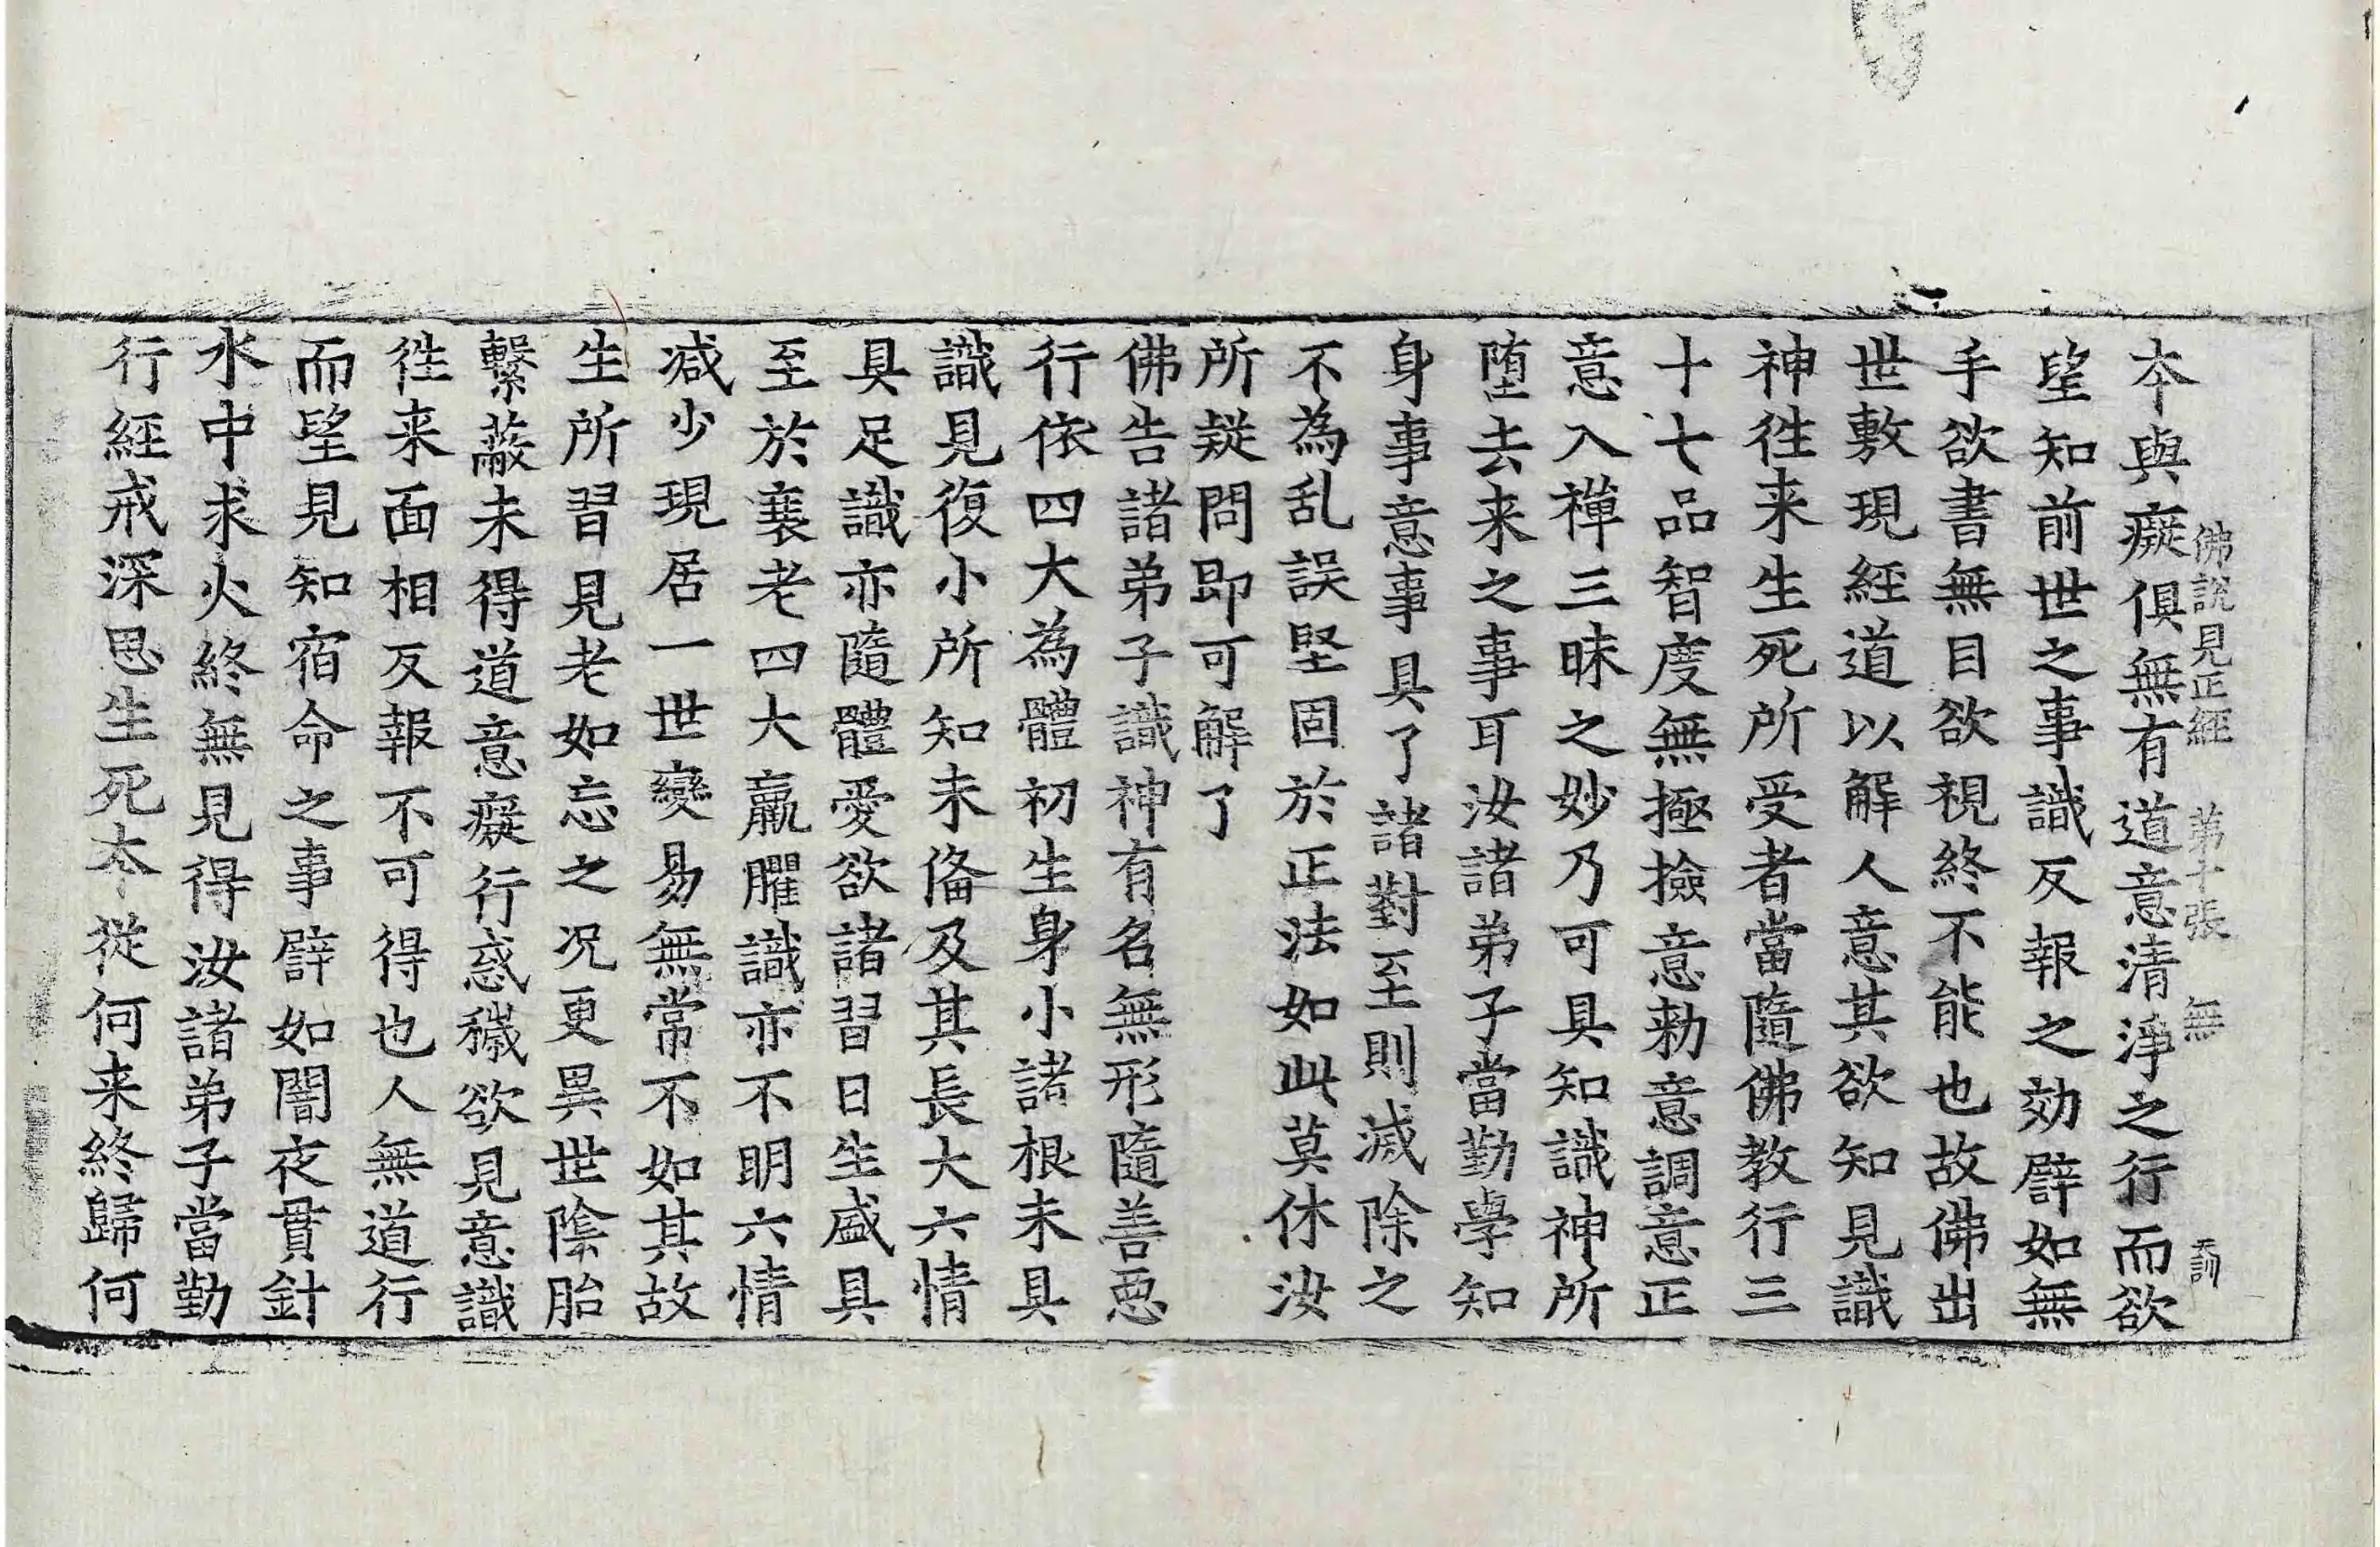 本與癡俱無有道意清淨之行而欲
佛說見正經　第十張　無
望知前世之事識反報之効辟如無
手欲書無目欲視終不能也故佛出
世敷現經道以解人意其欲知見識
神徃来生死所受者當隨佛教行三
十七品智度無極撿意勑意調意正
意入禪三昧之妙乃可具知識神所
墮去来之事耳汝諸弟子當勤學知
身事意事具了諸對至則滅除之
不為乱誤堅固於正法如此莫休汝
所疑問即可解了
佛告諸弟子識神有名無形隨善惡
行依四大為體初生身小諸根未具
識見復小所知未俻及其長大六情
具足識亦隨體愛欲諸習日生盛具
至於衰老四大羸臞識亦不明六情
减少現居一世變易無常不如其故
生所習見老如忘之况更異世陰胎
繫蔽未得道意癡行惑穢欲見意識
徃来面相反報不可得也人無道行
而望見知宿命之事辟如闇夜貫針
水中求火終無見得汝諸弟子當勤
行經戒深思生死本從何来終歸何